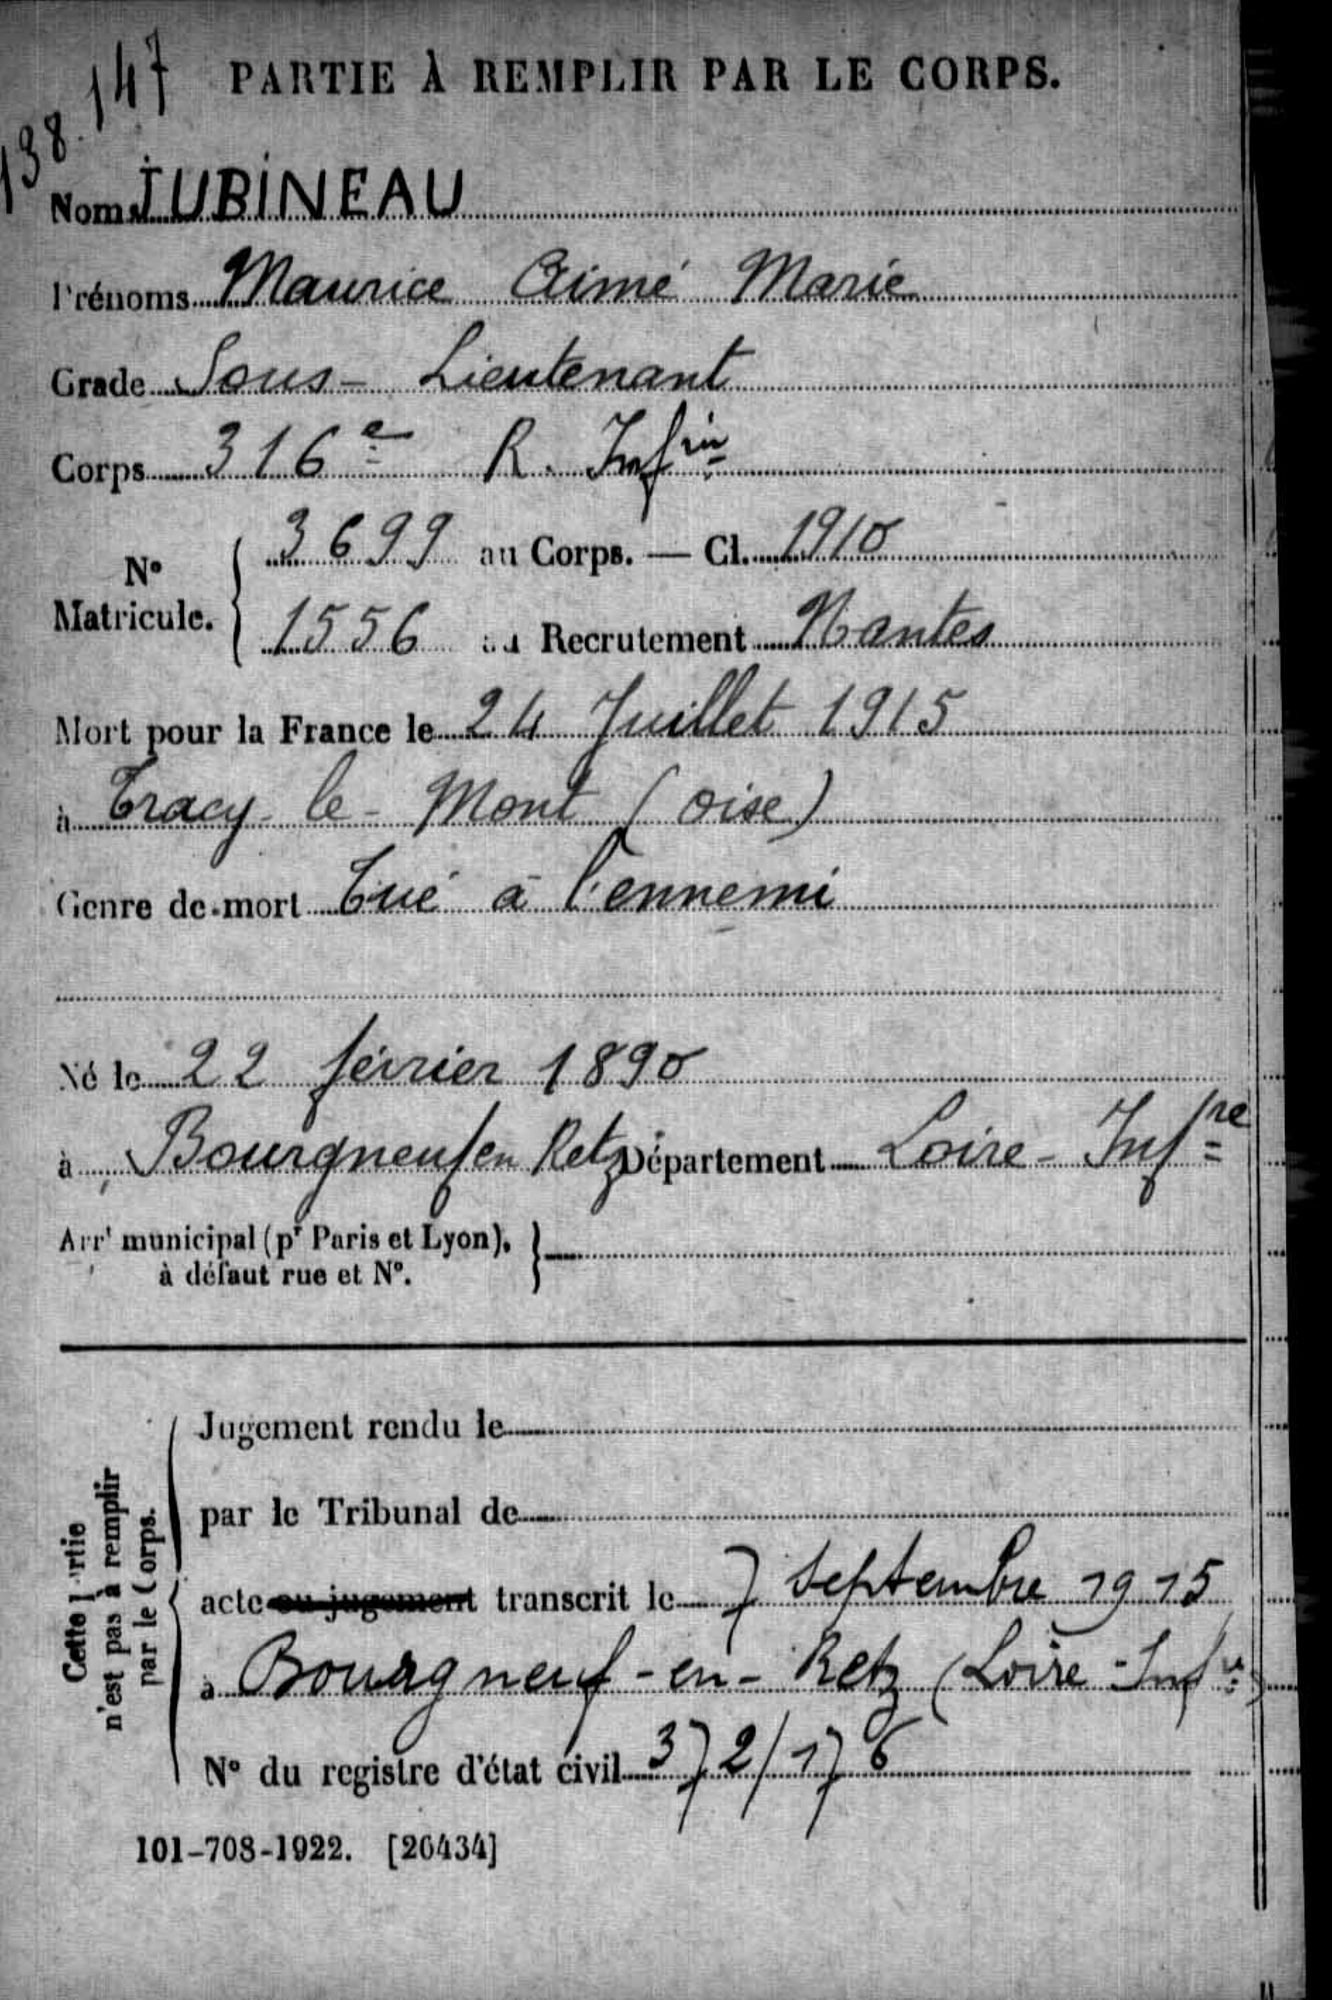 147
138.
PARTIE À REMPLIR PAR LE CORPS.
Nom JUBINEAU
Prénoms Maurice Aimé Marie
Grade Sous-Lieutenant
Corps 316e R. Infie
No Matricule. { 3699 au Corps. — Cl. 1910
1556 au Recrutement Nantes
Mort pour la France le 24 Juillet 1915
à Tracy-le-Mont (Oise)
Genre de mort Tué à l'ennemi
Né le 22 février 1890
à Bourgneuf en Retz Département Loire-Infre
Arrt municipal (pr Paris et Lyon), }
à défaut rue et No.
Cette partie
n'est pas à remplir
par le Corps.
Jugement rendu le
par le Tribunal de
acte ou jugement transcrit le 7 Septembre 1915
à Bourgneuf-en-Retz (Loire-Infre)
No du registre d'état civil 372/176
101-708-1922. [26434]